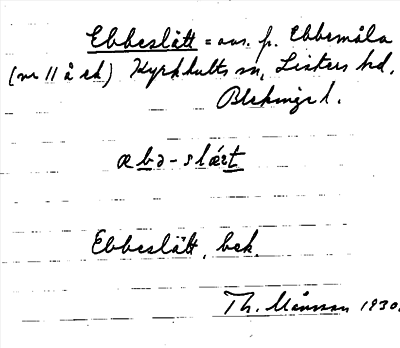 Ebbeslätt = avs. p. Ebbemåla
(nr 11 å ek) Kyrkhults sn, Listers hd.
Blekinge l.
æbə-slǽtt
Ebbeslätt, bek.
Th. Månsson 1930.